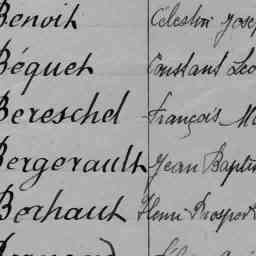 Benoit Célestin Josep
Béquet Constant Leo
Bereschel François M
Bergerault Jean Baptis
Berhaut Henri Prosper